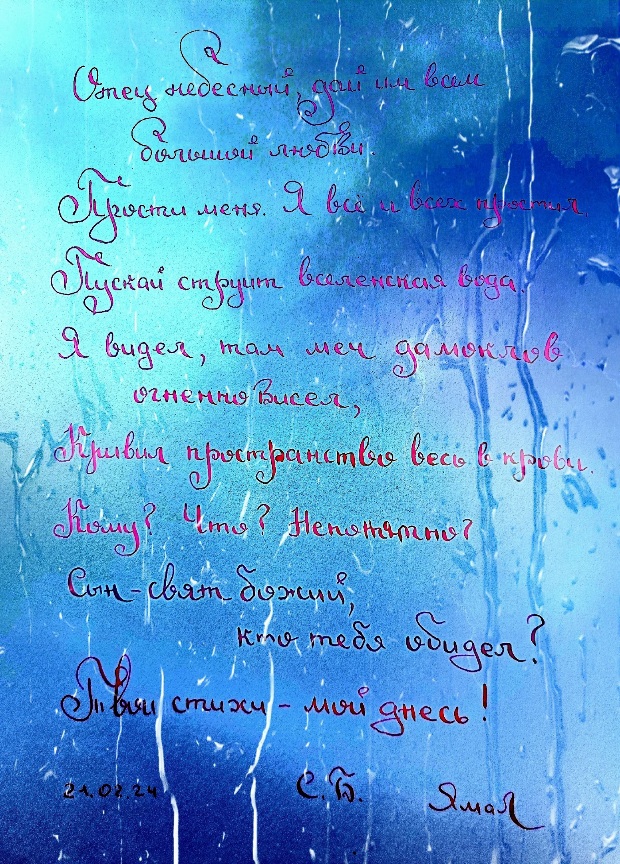 Отец небесный, дай им всем
большой любви.
Прости меня. Я всё и всех простил.
Пускай струит вселенская вода.
Я видел, там меч дамоклов
огненно висел,
Кривил пространство весь в крови.
Кому? Что? Непонятно?
Сын-свят божий,
кто тебя обидел?
Твои стихи - мой днесь!
21.02.24 С.Б. Ямал